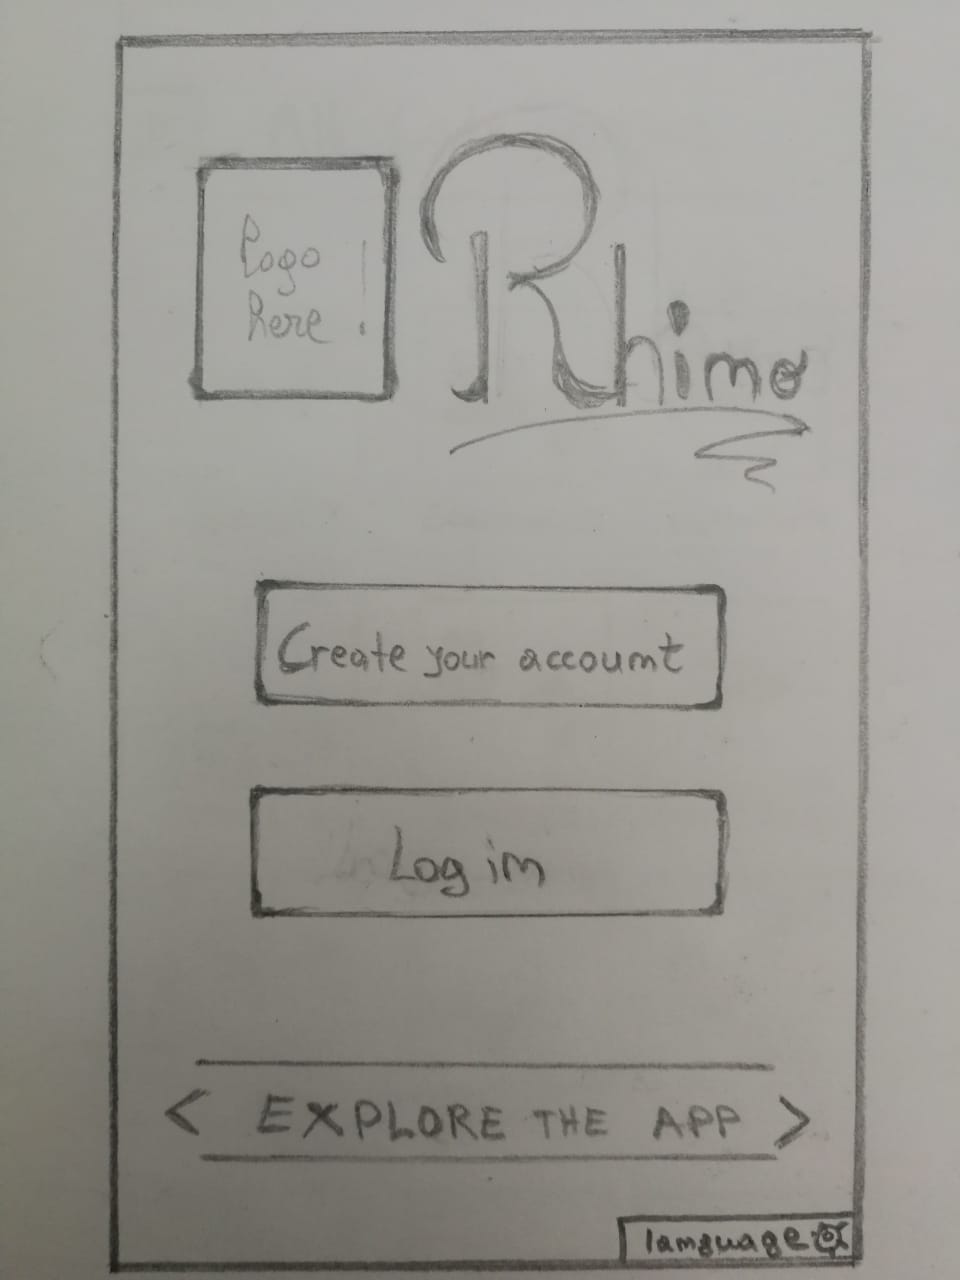 Logo
here !
Rhino
Create your account
Log in
< EXPLORE THE APP >
language